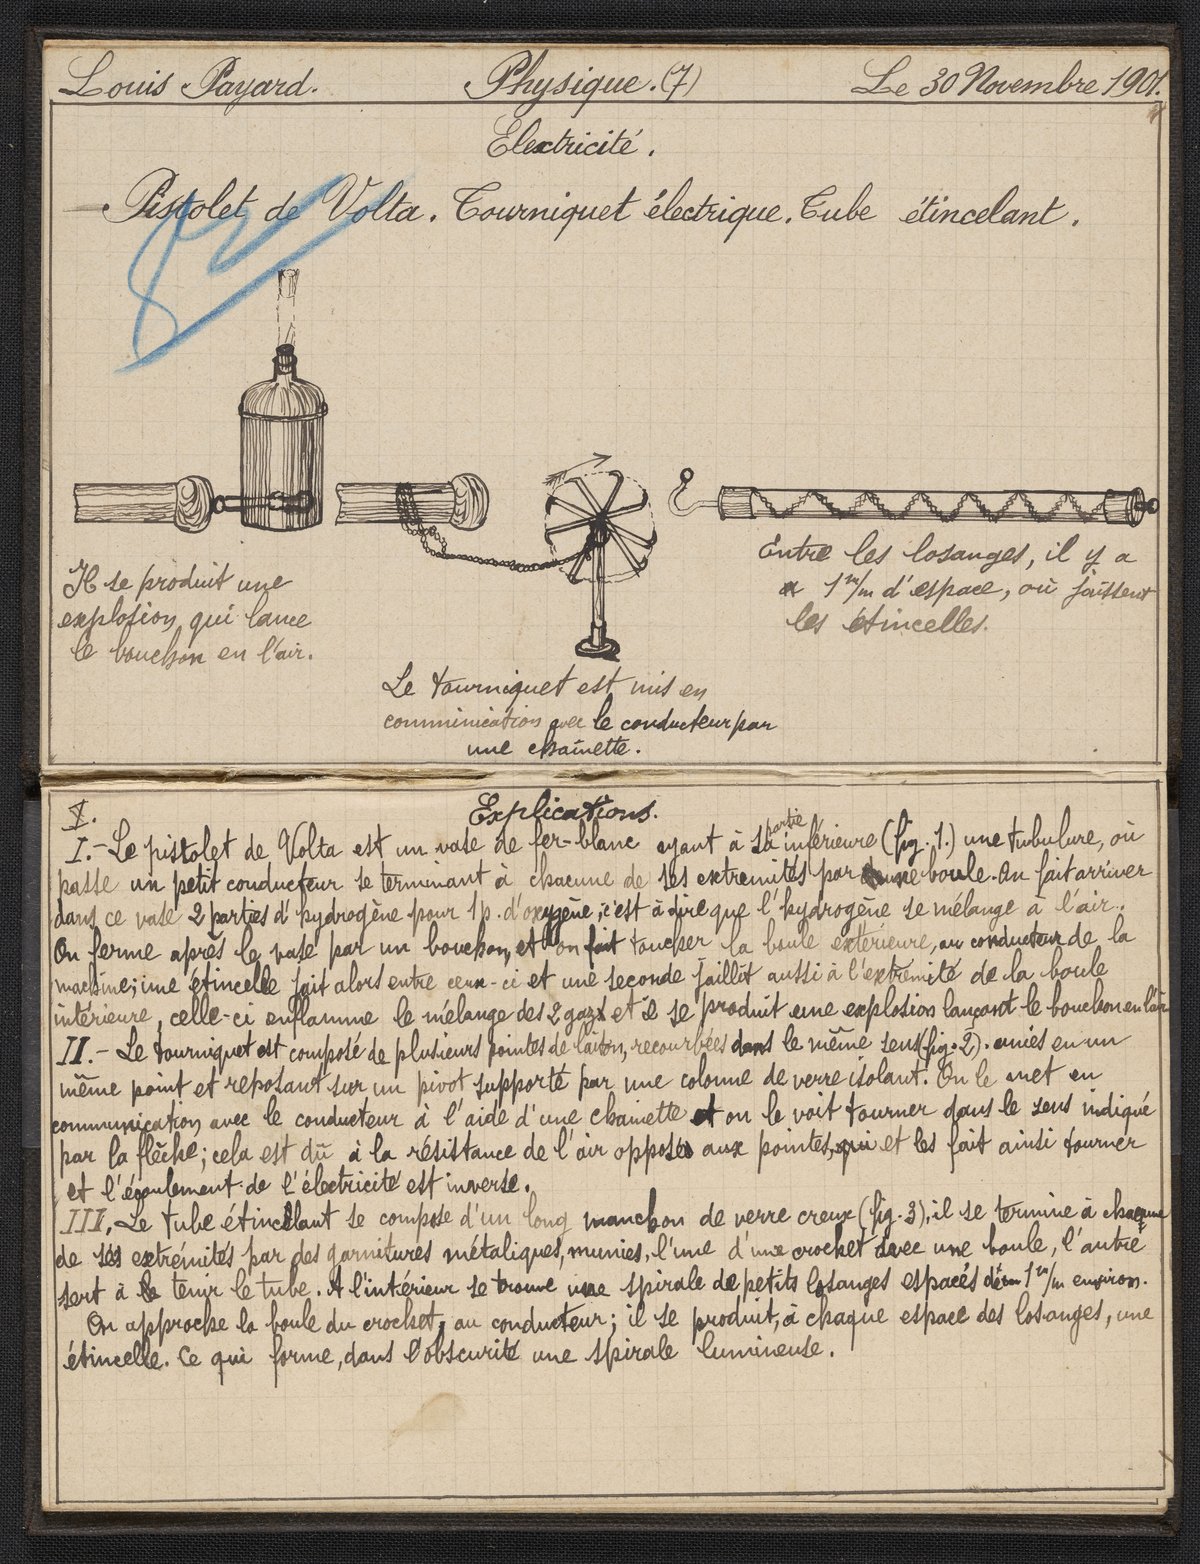 Louis Payard. Physique. (7) Le 30 Novembre 1901.
Electricité.
Pistolet de Volta. Tourniquet électrique. Tube étincelant.
Il se produit une
explosion, qui lance
le bouchon en l'air.
Le tourniquet est mis en
comminication avec le conducteur par
une chaînette.
Entre les losanges, il y a
1 m/m d'espace, où jaissent
les étincelles.
Explications.
I.- Le pistolet de Volta est un vase de fer-blanc ayant à sa partie inférieure (fig. 1.) une tubulure, où
passe un petit conducteur se terminant à chacune de ses extremités par une boule. On fait arriver
dans ce vase 2 parties d'hydrogène pour 1 p. d'oxygène, c'est à dire que l'hydrogène se mélange à l'air.
On ferme après le vase par un bouchon, et l'on fait toucher la boule extérieure, au conducteur de la
machine; une étincelle jait alors entre ceux-ci et une seconde jaillit aussi à l'extremité de la boule
intérieure, celle-ci enflamme le mélange des 2 gazs et il se produit une explosion lançant le bouchon en l'air
II.- Le tourniquet est composé de plusieurs pointes de laiton, recourbées dans le même sens (fig. 2). unies en un
même point et reposant sur un pivot supporté par une colonne de verre isolant. On le met en
communication avec le conducteur à l'aide d'une chainette et on le voit tourner dans le sens indiqué
par la flêche; cela est dû à la résistance de l'air opposée aux pointes, qui et les fait ainsi tourner
et l'écoulement de l'électricité est inverse.
III. Le tube étincelant se compose d'un long manchon de verre creux (fig. 3), il se termine à chacune
de ses extrémités par des garnitures métaliques, munies, l'une d'une crochet avec une boule, l'autre
sert à le tenir le tube. A l'intérieur se trouve une spirale de petits losanges espacés d'un 1 m/m environ.
On approche la boule du crochet, au conducteur; il se produit, à chaque espace des losanges, une
étincelle. Ce qui forme, dans l'obscurité une spirale lumineuse.